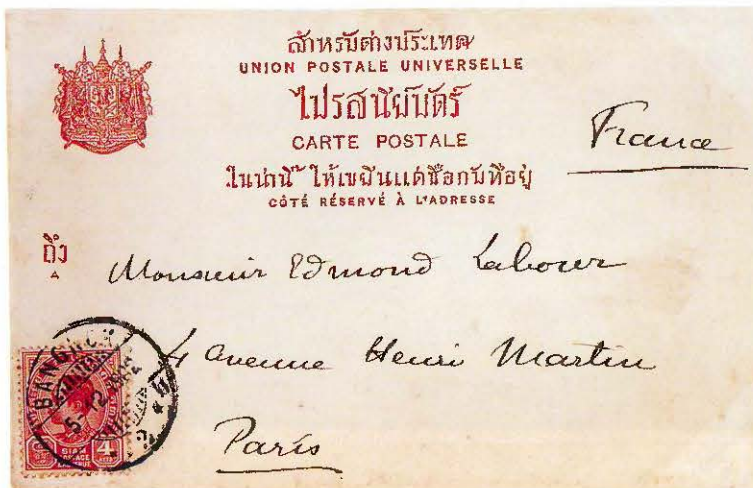 สำหรับต่างประเทศ
UNION POSTALE UNIVERSELLE
ไปรสนียบัตร์
CARTE POSTALE
France
ในน่านี้ ให้เขียนแต่ชื่อกับที่อยู่
CÔTÉ RÉSERVÉ À L'ADRESSE
ถึง
A
Monsieur Edmond Labouer
4 avenue Henri Martin
Paris
BANGKOK
SIAM
4